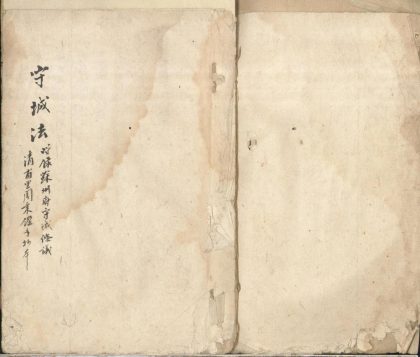 守城法
附錄蘇州府守城條議
清甫里周秉鑑手抄本